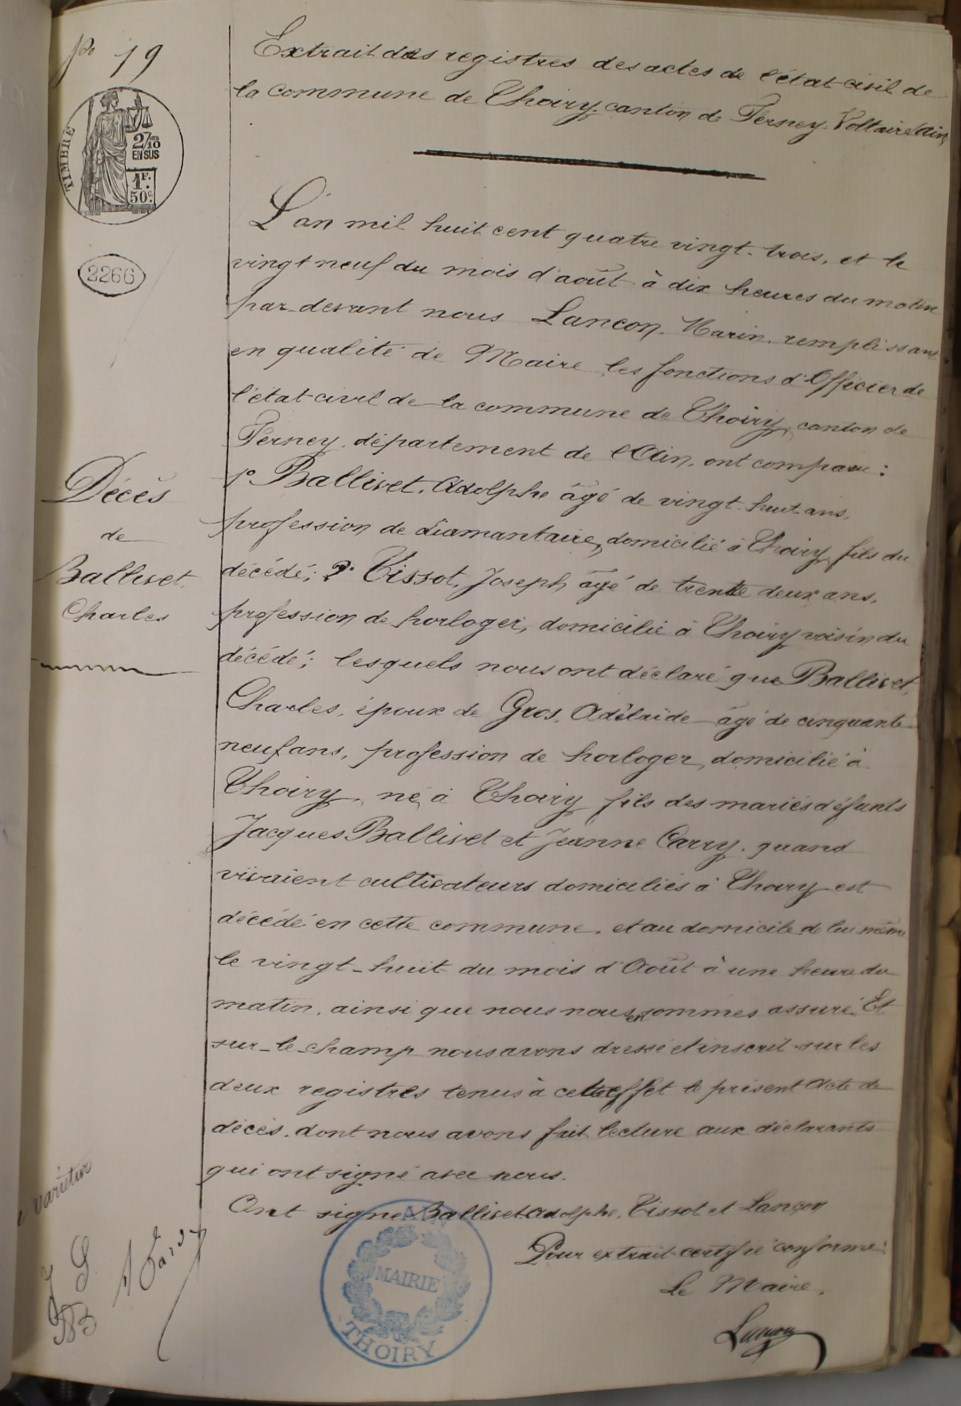 No 19
Extrait des registres des actes de l'état civil de
la commune de Thoiry, canton de Ferney-Voltaire (Ain)
TIMBRE
2/10 EN SUS
1F.50c
2266
L'an mil huit cent quatre vingt-trois, et le
vingt neuf du mois d'août à dix heures du matin
par-devant nous Lançon Marin remplissant
en qualité de Maire les fonctions d'Officier de
l'état-civil de la commune de Thoiry, canton de
Ferney, département de l'Ain, ont comparu :
1o Ballivet, Adolphe âgé de vingt-huit ans,
profession de diamantaire, domicilié à Thoiry, fils du
décédé ; 2o Tissot, Joseph, âgé de trente deux ans,
profession de horloger, domicilié à Thoiry voisin du
décédé ; lesquels nous ont déclaré que Ballivet,
Charles, époux de Gros, Adélaïde âgé de cinquante
neuf ans, profession de horloger, domicilié à
Thoiry, né à Thoiry fils des mariés défunts
Jacques Ballivet et Jeanne Carry, quand
vivaient cultivateurs domiciliés à Thoiry est
décédé en cette commune, et au domicile de lui même
le vingt-huit du mois d'Août à une heure du
matin, ainsi que nous nous en sommes assuré. Et
sur-le-champ nous avons dressé et inscrit sur les
deux registres tenus à cet effet le présent acte de
décès, dont nous avons fait lecture aux déclarants
qui ont signé avec nous.
Ont signé Ballivet Adolphe, Tissot et Lançon
Pour extrait certifié conforme :
Le Maire,
Lançon
Décès
de
Ballivet
Charles
AIN
MAIRIE
THOIRY